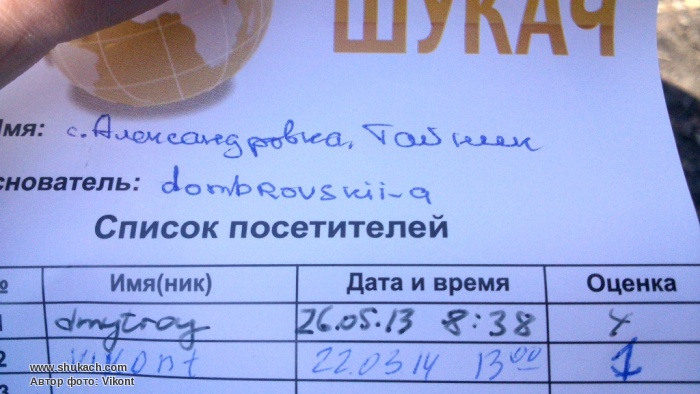 ШУКАЧ
Имя: с. Александровка, Тайник
снователь: dombrovskii-a
Список посетителей
№ Имя(ник) Дата и время Оценка
1 dmytroy 26.05.13 8:38 4
2 vikont 22.03.14 13 00 1
3
www.shukach.com
Автор фото: Vikont